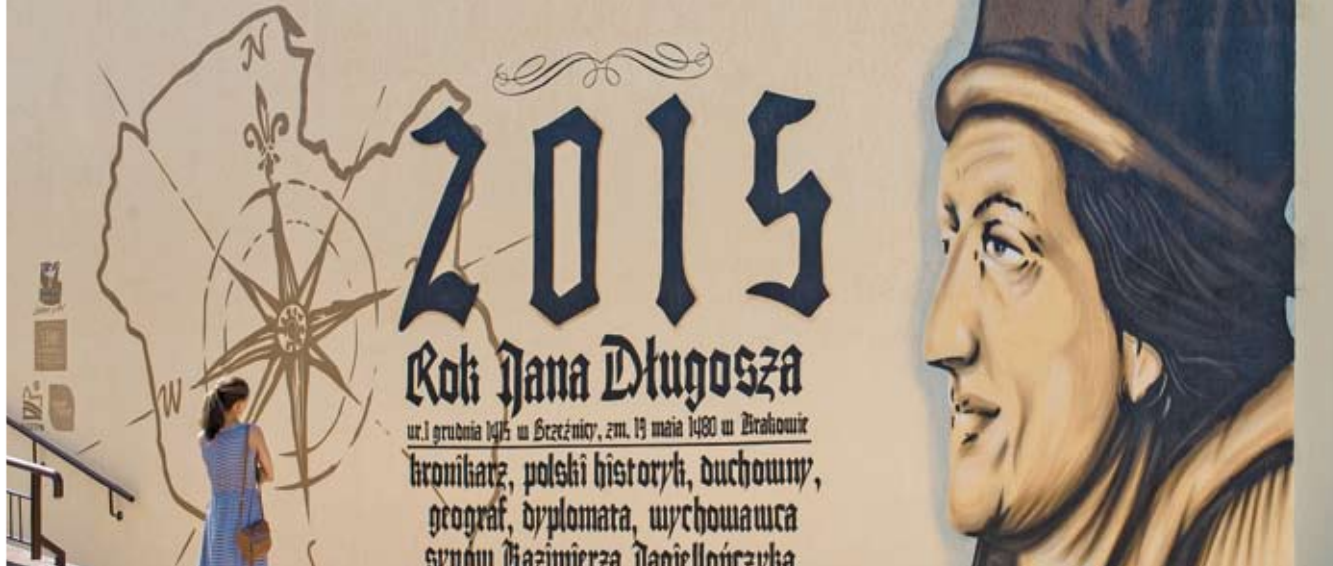 N
2015
Rok Jana Długosza
ur. 1 grudnia 1415 w Brzeźnicy, zm. 19 maia 1480 w Krakowie
kronikarz, polski historyk, duchowny,
geograf, dyplomata, wychowawca
synów Kazimierza Jagiellończyka
W